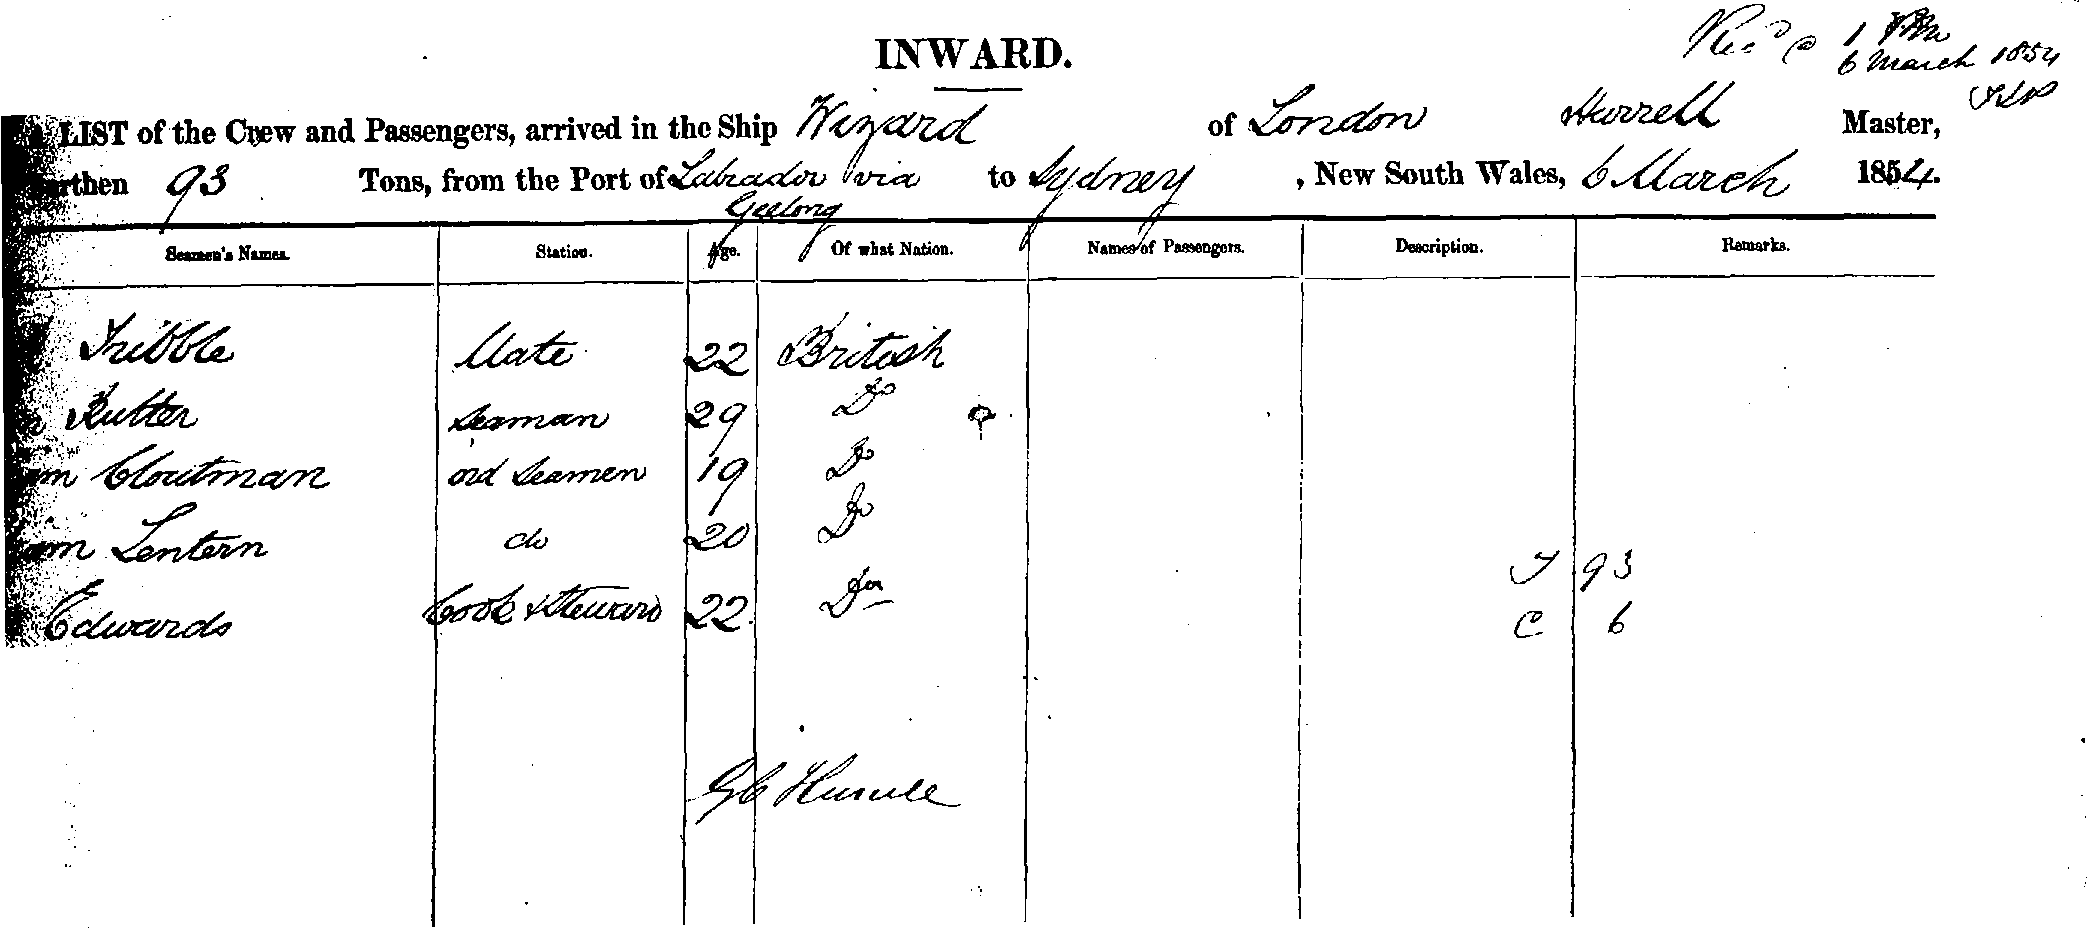 INWARD.
1 PM
6 March 1854
LIST of the Crew and Passengers, arrived in the Ship Wizard of London Hurrell Master,
93 Tons, from the Port of Labrador via to Sydney, New South Wales, 6 March 1854.
Geelong
Seamen's Names. Station. Age. Of what Nation. Names of Passengers. Description. Remarks.
Tribble Mate 22 British
Rutter Seaman 29 Do
Cloutman ord Seamen 19 Do
Lentern do 20 Do
T 93
Edwards Cook & Steward 22 Do
C 6
G C Hurrell